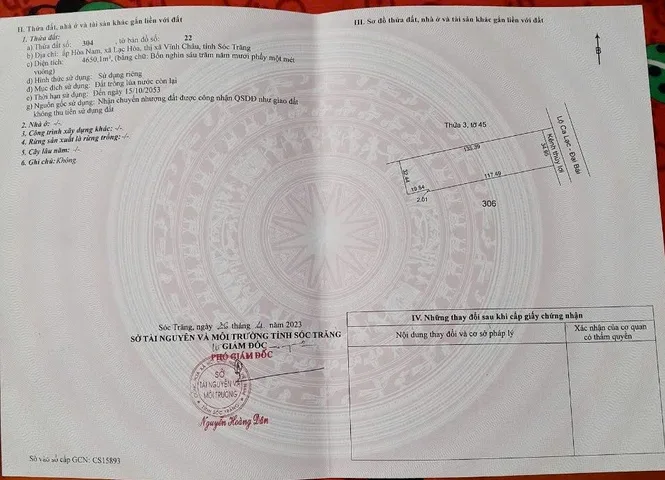 II. Thửa đất, nhà ở và tài sản khác gắn liền với đất
1. Thửa đất:
a) Thửa đất số: 304, tờ bản đồ số: 22
b) Địa chỉ: ấp Hòa Nam, xã Lạc Hòa, thị xã Vĩnh Châu, tỉnh Sóc Trăng
c) Diện tích: 4650,1m², (bằng chữ: Bốn nghìn sáu trăm năm mươi phẩy một mét
vuông)
d) Hình thức sử dụng: Sử dụng riêng
đ) Mục đích sử dụng: Đất trồng lúa nước còn lại
e) Thời hạn sử dụng: Đến ngày 15/10/2053
g) Nguồn gốc sử dụng: Nhận chuyển nhượng đất được công nhận QSDĐ như giao đất
không thu tiền sử dụng đất
2. Nhà ở: -/-
3. Công trình xây dựng khác: -/-
4. Rừng sản xuất là rừng trồng: -/-
5. Cây lâu năm: -/-
6. Ghi chú: Không.
Sóc Trăng, ngày 26 tháng 4 năm 2023
SỞ TÀI NGUYÊN VÀ MÔI TRƯỜNG TỈNH SÓC TRĂNG
GIÁM ĐỐC
PHÓ GIÁM ĐỐC
SỞ
TÀI NGUYÊN VÀ
MÔI TRƯỜNG
TỈNH SÓC TRĂNG
Nguyễn Hoàng Dân
Số vào sổ cấp GCN: CS15893
III. Sơ đồ thửa đất, nhà ở và tài sản khác gắn liền với đất
B
Thửa 3, tờ 45
Lộ Ca Lạc - Đại Bái
Kênh thủy lợi
34.95
32.44
19.54
2.01
117.49
306
IV. Những thay đổi sau khi cấp giấy chứng nhận
Nội dung thay đổi và cơ sở pháp lý
Xác nhận của cơ quan
có thẩm quyền